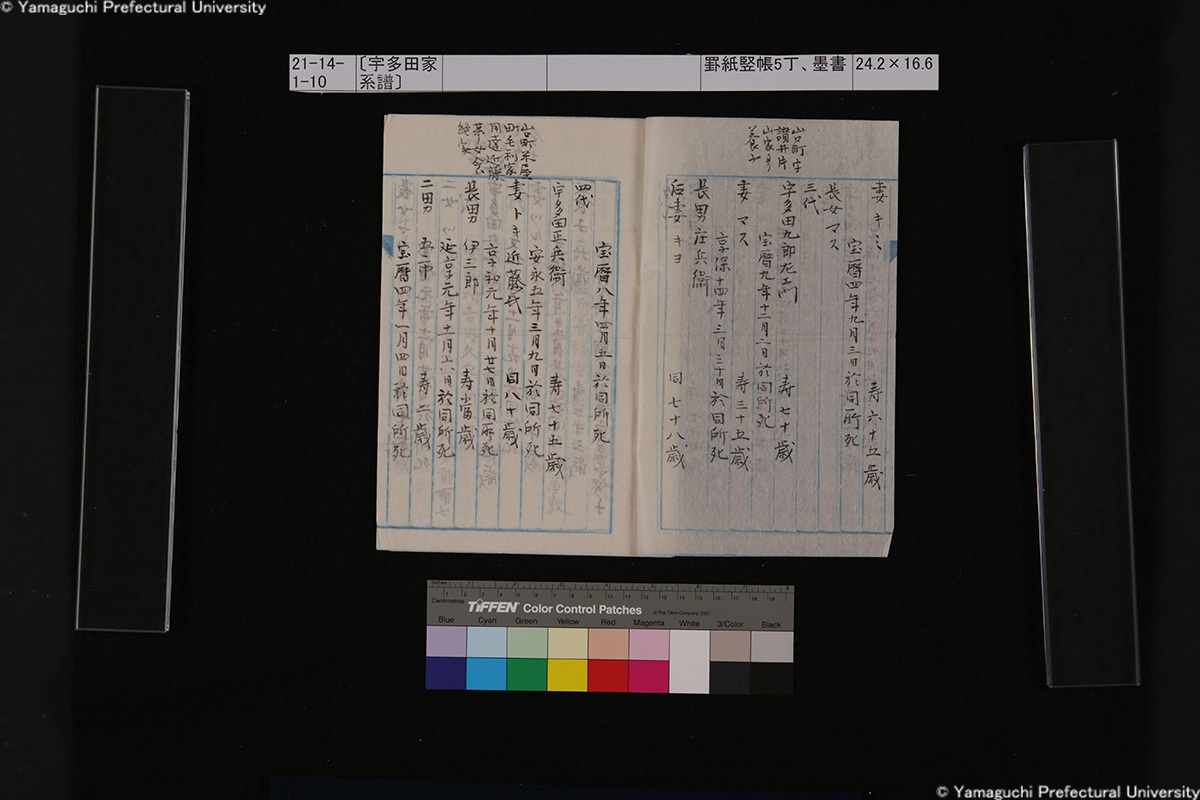 © Yamaguchi Prefectural University
21-14-1-10
〔宇多田家系譜〕
罫紙竪帳5丁、墨書
24.2×16.6
妻 キミ 寿六十五歳
宝暦四年九月三日於同所死
長女 マス
三代
山口町字
讃井片
山家ヨリ
養子
宇多田九郎左エ門 寿七十歳
宝暦九年十二月二日於同所死
妻 マス 寿三十五歳
享保十四年三月三十日於同所死
長男 庄兵衛
后妻 キヨ 同七十八歳
宝暦八年四月五日於同所死
四代
宇多田正兵衛 寿七十五歳
安永五年三月九日於同所死
山口町茶屋
町毛利家
用達近藤
妻 トキ 近藤氏 同八十歳
享和元年十月廿七日於同所死
長男 伊三郎 寿 歳
延享元年十一月十六日於同所死
二男 寿六歳
宝暦四年一月四日於同所死
Inches
Centimetres
TIFFEN Color Control Patches
© The Tiffen Company, 2007
Blue Cyan Green Yellow Red Magenta White 3/Color Black
© Yamaguchi Prefectural University